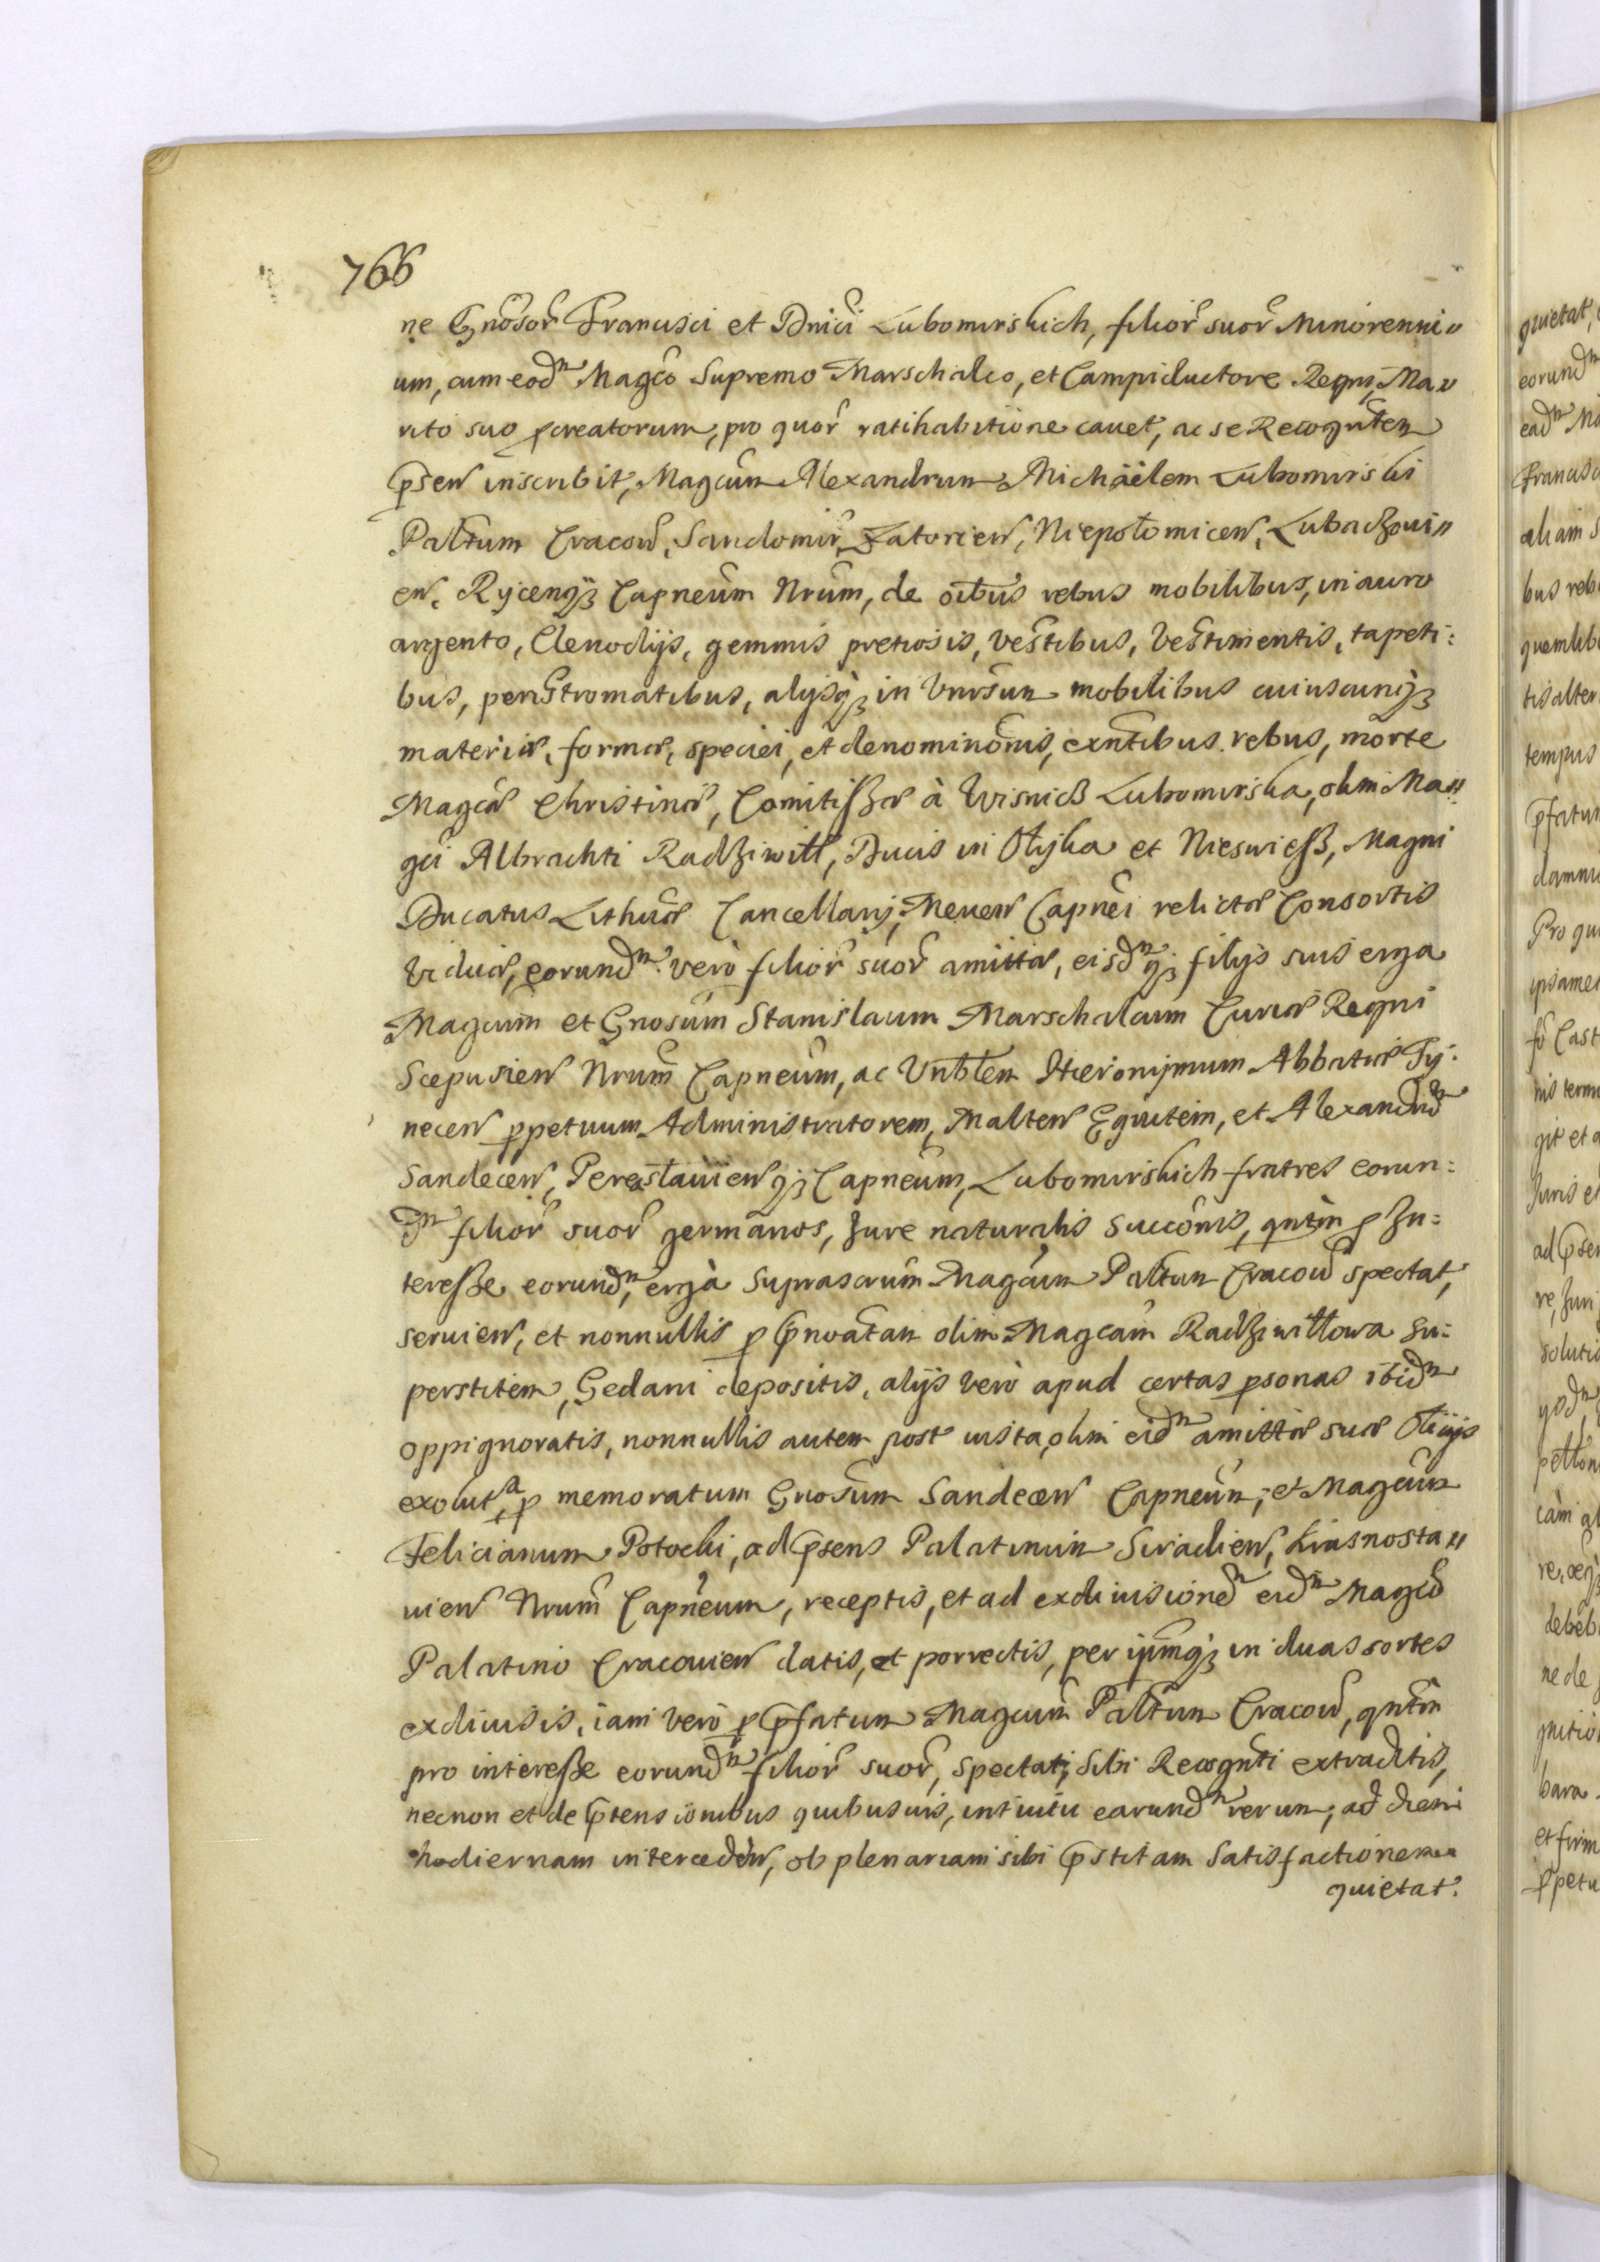 766
ne Gnõsor̃ Francisci et Dnici Lubomirskich, filior̃ suor̃ Minorenni⸗
um, cum eodm̃ Magco Supremo Marschalco, et Campiductore Regni, Ma⸗
rito suo pcreatorum, pro quor̃ ratihabitione cauet, ac se Recogntem
pnsen inscribit, Magcum Alexandrum Michäelem Lubomirski
Paltum Cracou, Sandomir, Zatorien, Niepołomicen, Lubaczoui⸗
en, Ryicenqʒ Capneum Nrum, de oibus rebus mobilibus, in auro
argento, Clenodijs, gemmis pretiosis, vestibus, vestimentis, tapeti:
bus, peristromatibus, alijsqʒ in Vnirsum mobilibus cuiuscunqʒ
materiæ, formæ, speciei, et denominõnis, exntibus rebus, morte
Magcæ Christinæ, Comitissæ à Wisnicz Lubomirska, olim Ma⸗
gci Albrachti Radziwiłł, Ducis in Ołyka et Nieswiesz, Magni
Ducatus Lithuæ Cancellarij, Meuen Capnei relictæ Consortis
Viduæ, eorundm̃ verò filior̃ suor̃ amittæ, eisdm̃qʒ filijs suis erga
Magcum et Gnosum Stanislaum Marschalcum Curiæ Regni
Scepusien Nrum Capneum, ac Vnblem Hieronijmum Abbatiæ Tij:
necen ppetuum Administratorem, Malten Equitem, et Alexandrũ
Sandecen, Peresławienqʒ Capneum, Lubomirskich fratres eorun:
dm̃ filior̃ suor̃ germanos, Jure naturalis succõnis, qntum p In:
teresse eorundm̃, ergà suprascrum Magcum Paltum Cracou spectat,
seruien, et nonnullis p pnoatam olim Magcam Radziwiłłowa su:
perstitem, Gedani depositis, alijs verò apud certas psonas ibidm̃
oppignoratis, nonnullis autem post uista, olim eidm̃ amittæ suæ
exoluta, p memoratum Gnosum Sandecen Capneum, et Magcum
Felicianum Potocki, ad psens Palatinum Siradien, Krasnosta⸗
uien Nrum Capneum, receptis, et ad exdiuisionem eidm̃ Magco
Palatino Cracouien datis, et porrectis, per ipsumqʒ in duas sortes
exdiuisis, iam verò p pfatum Magcum Paltum Cracou, qntum
pro interesse eorundm̃ filior̃ suor̃, spectat, sibi Recognti extraditis,
necnon et de ptensionibus quibusuis, intuitu earundm̃ rerum, ad diem
hodiernam interceden, ob plenariam sibi pstitam Satisfactionem
quietat.
quietat,
eorundm̃
eadm̃ Ma
Francisc
aliam S
bus reb
quemlib
tis alter
tempus
pfatum
damni
Pro qu
ipsamet
Cast
nis term
git et a
Juris et
ad psen
re, Juri
soluti
petton
cam
debeb
ne de
gnition
bara
et firm
ppetu